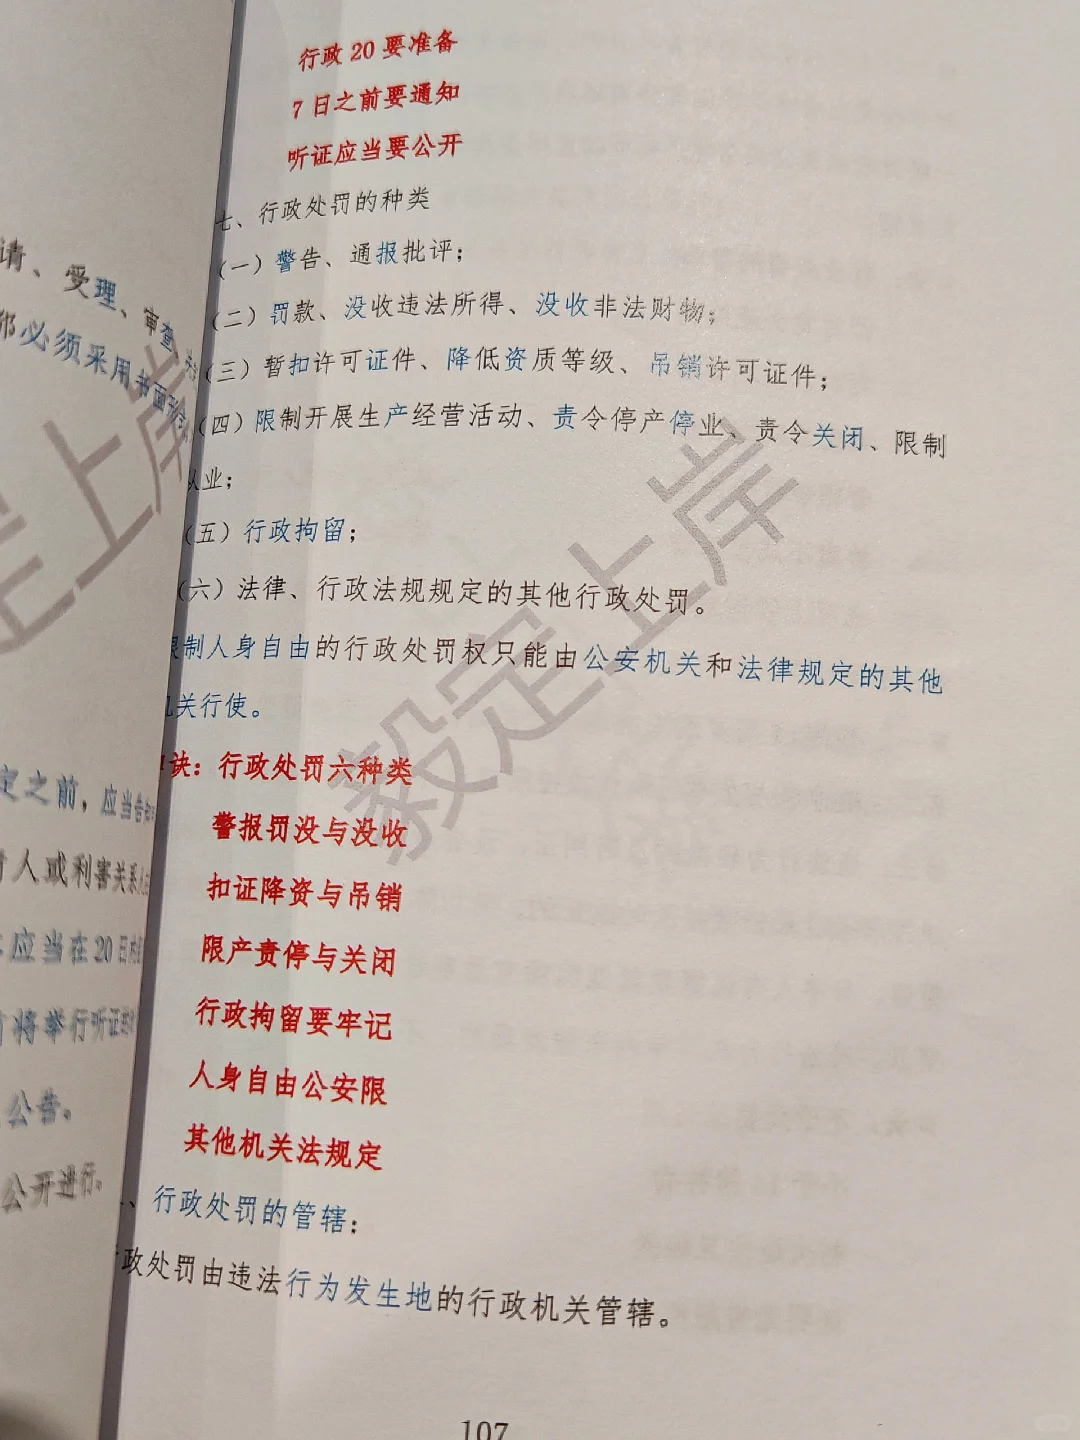 行政20要准备
7日之前要通知
听证应当要公开
七、行政处罚的种类
（一）警告、通报批评；
（二）罚款、没收违法所得、没收非法财物；
（三）暂扣许可证件、降低资质等级、吊销许可证件；
（四）限制开展生产经营活动、责令停产停业、责令关闭、限制
从业；
（五）行政拘留；
（六）法律、行政法规规定的其他行政处罚。
限制人身自由的行政处罚权只能由公安机关和法律规定的其他
机关行使。
口诀：行政处罚六种类
警报罚没与没收
扣证降资与吊销
限产责停与关闭
行政拘留要牢记
人身自由公安限
其他机关法规定
、行政处罚的管辖：
行政处罚由违法行为发生地的行政机关管辖。
107
毅定上岸
请、受理、审查、
必须采用书面形式
定之前，应当告知
人或利害关系人
应当在20日内
将举行听证
公告。
公开进行。
定上岸